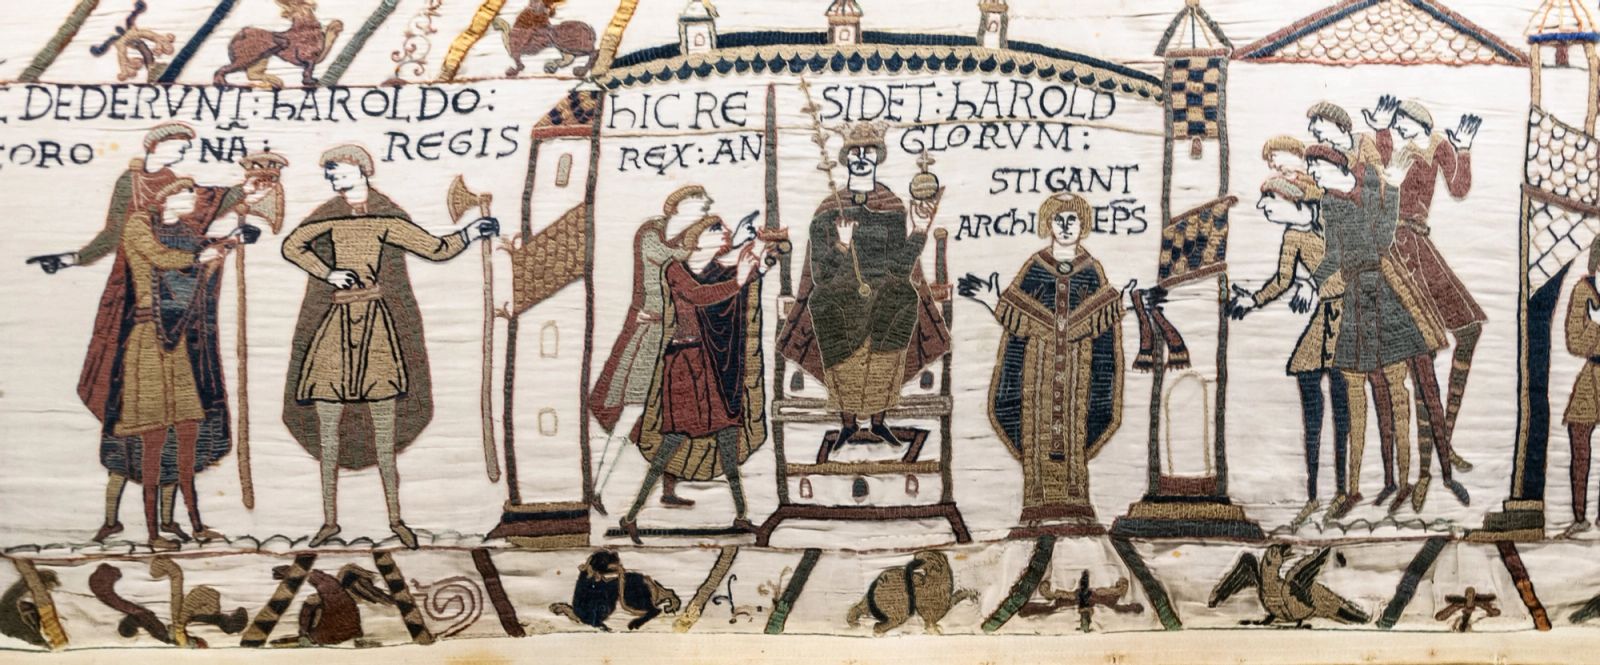 DEDERVNT: hAROLDO:
CORO NA: REGIS
hIC RE SIDET: hAROLD
REX: AN GLORVM:
STIGANT
ARChI EP̄S